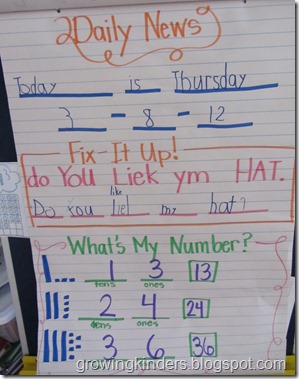 Daily News
Today is Thursday
3 - 8 - 12
Fix-It Up!
do You Liek ym HAT.
like
Do You my hat?
What's My Number?
1 3 13
tens ones
2 4 24
tens ones
3 6 36
growingkinders.blogspot.com